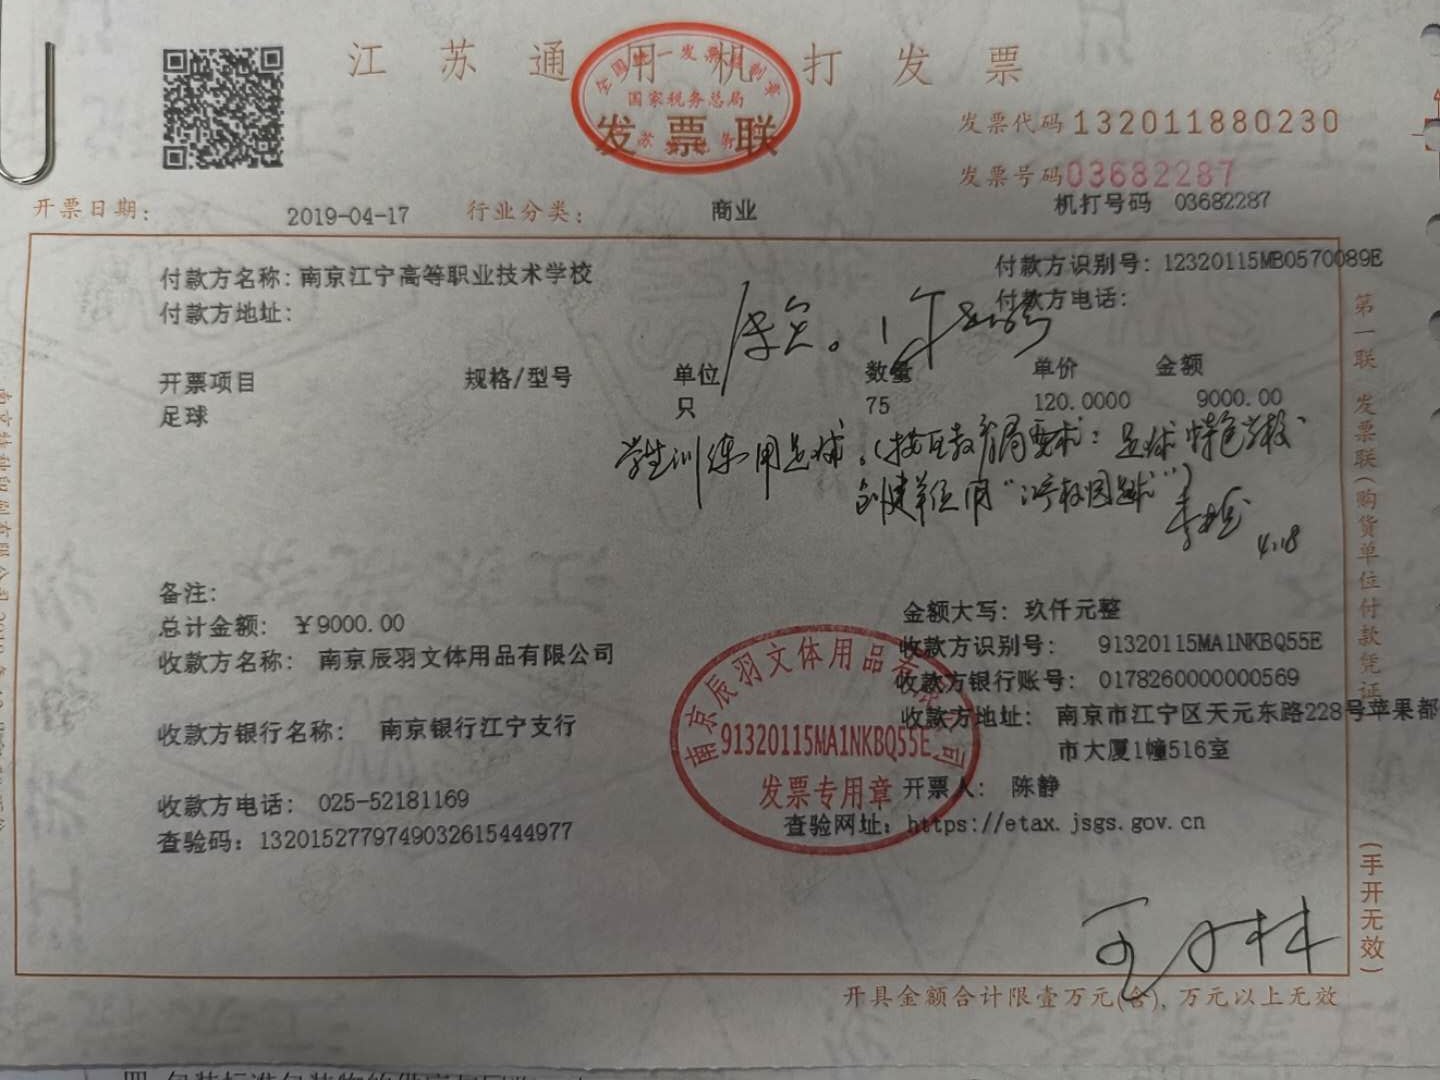 江苏通用机打发票
全国统一发票监制章
国家税务总局
发票联
发票代码 132011880230
发票号码 03682287
机打号码 03682287
开票日期: 2019-04-17 行业分类: 商业
付款方名称: 南京江宁高等职业技术学校 付款方识别号: 12320115MB0570089E
付款方地址: 付款方电话:
开票项目 规格/型号 单位 数量 单价 金额
足球 只 75 120.0000 9000.00
学生训练用足球。(按区教育局要求: 足球特色学校
创建单位用
4.18
备注:
总计金额: ￥9000.00 金额大写: 玖仟元整
收款方名称: 南京辰羽文体用品有限公司 收款方识别号: 91320115MA1NKBQ55E
收款方银行账号: 0178260000000569
收款方银行名称: 南京银行江宁支行 收款方地址: 南京市江宁区天元东路228号苹果都
市大厦1幢516室
收款方电话: 025-52181169 开票人: 陈静
查验码: 1320152779749032615444977 查验网址: https://etax.jsgs.gov.cn
南京辰羽文体用品有限公司
91320115MA1NKBQ55E
发票专用章
第一联 发票联(购货单位付款凭证)
(手开无效)
开具金额合计限壹万元(含), 万元以上无效